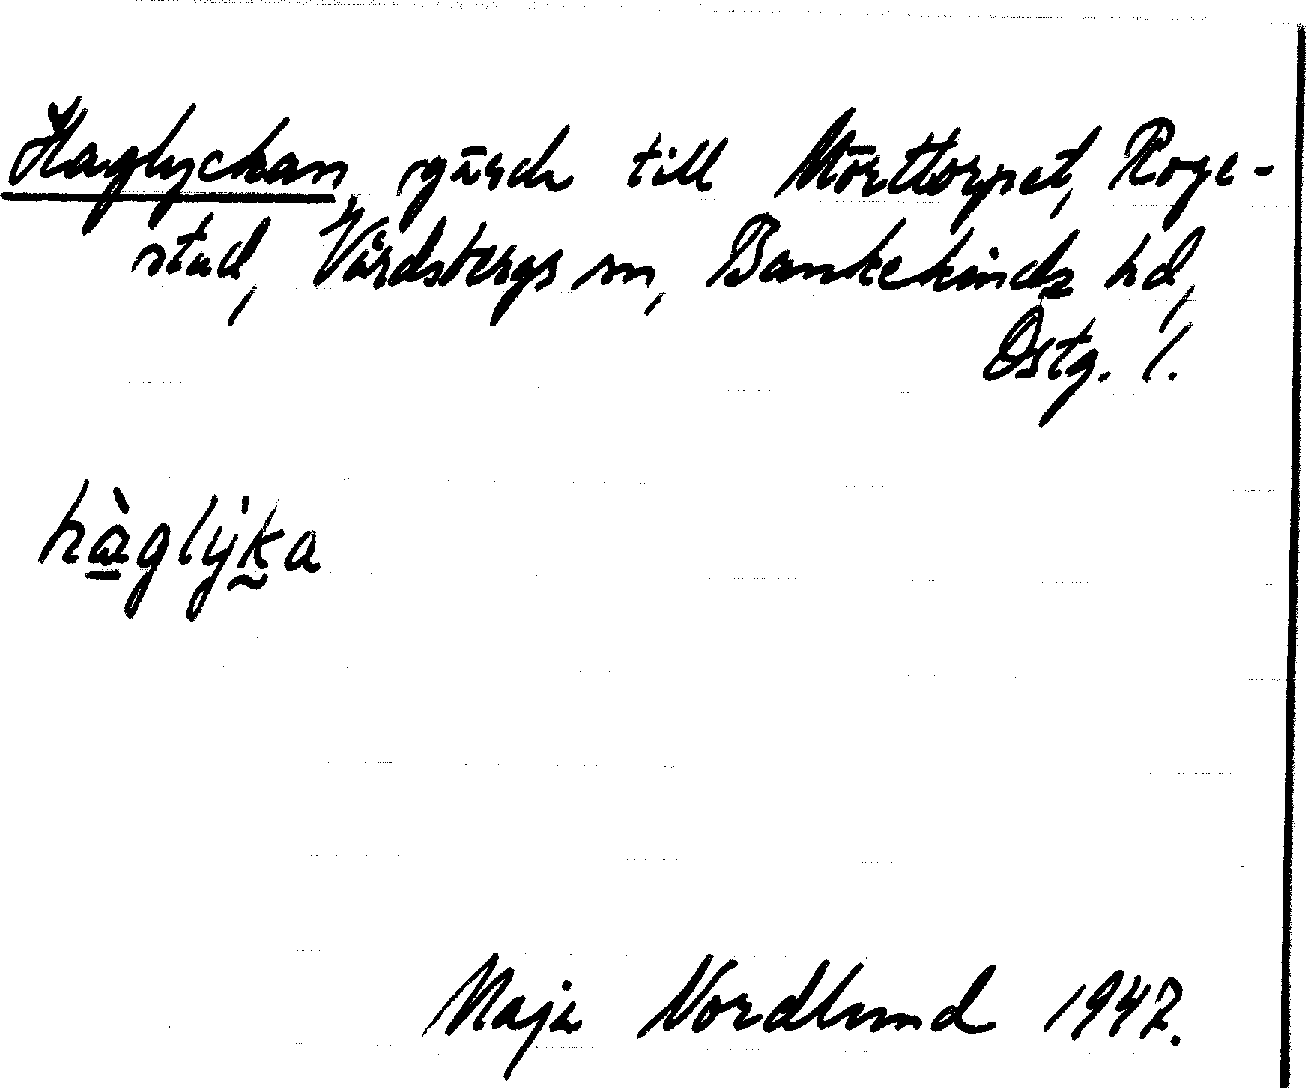 Haglyckan, gärde till Mörttorpet, Roge-
stad, Vårdsbergs sn, Bankekinds hd,
Östg. l.
hàglỳka
Maja Nordlund 1947.